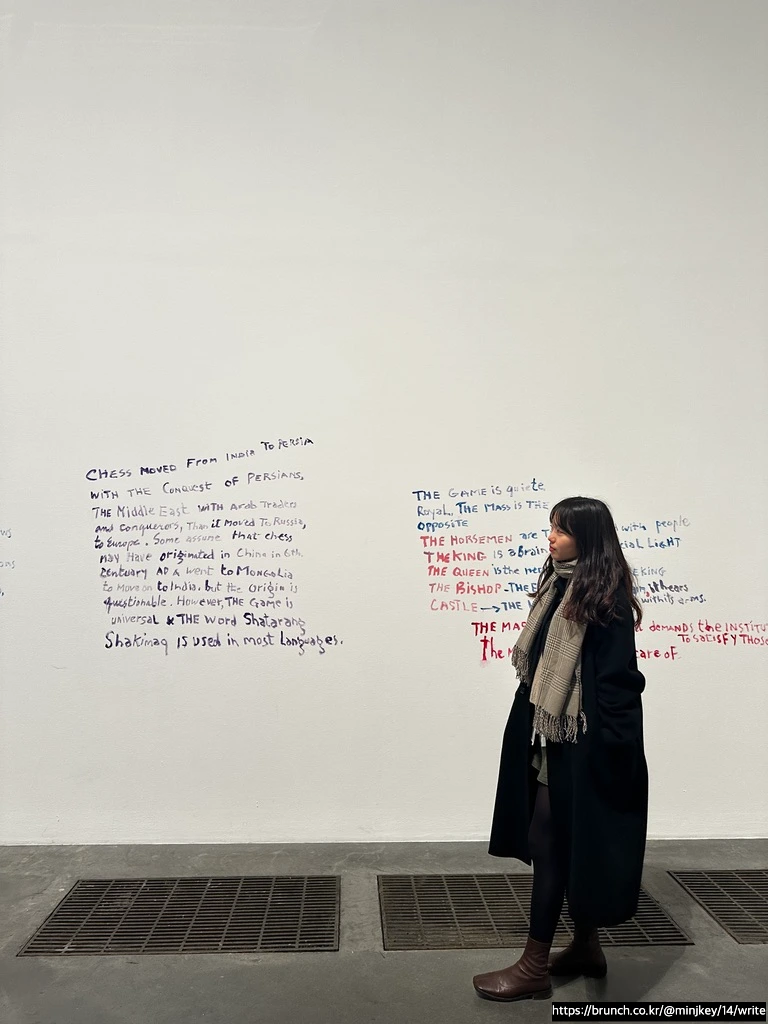 CHESS MOVED FROM INDIA TO PERSIA
WITH THE CONQUEST OF PERSIANS,
THE Middle EAST WITH Arab Traders
and conquerors, Than iT Moved To Russia,
to Europe. Some assume that chess
may Have originated in China in 6th.
Centuary AD & went to MONGOLIA
to Move on to India. but the Origin is
questionable. However, THE Game is
universal & THE Word Shatarang
Shakimaq IS used in most Languages.
THE GAME is quiete,
Royal, THE MASS IS THE
OPPOSITE
THE HORSEMEN are with people
THE KING is a Brain LIGHT
THE QUEEN is the KING
THE BISHOP - THE hears
CASTLE → THE with its arms.
THE demands the
TO SATISFY
the care of
https://brunch.co.kr/@minjkey/14/write